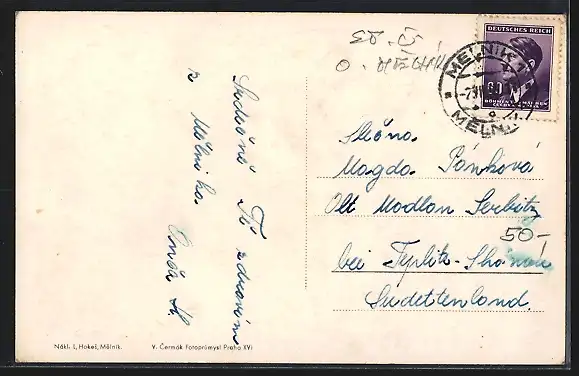 DEUTSCHES REICH
60
BÖHMEN u. MÄHREN
MELNIK 1
MĚLNÍK 1
Srdečně Tě zdravím
z Mělníka.
Slečna
Magda Pánková
Alt Modlan Serbitz
bei Teplitz-Schönau
Sudettenland.
50,-
Nákl. L. Hokeš, Mělník.
V. Čermák Fotoprůmysl Praha XVI